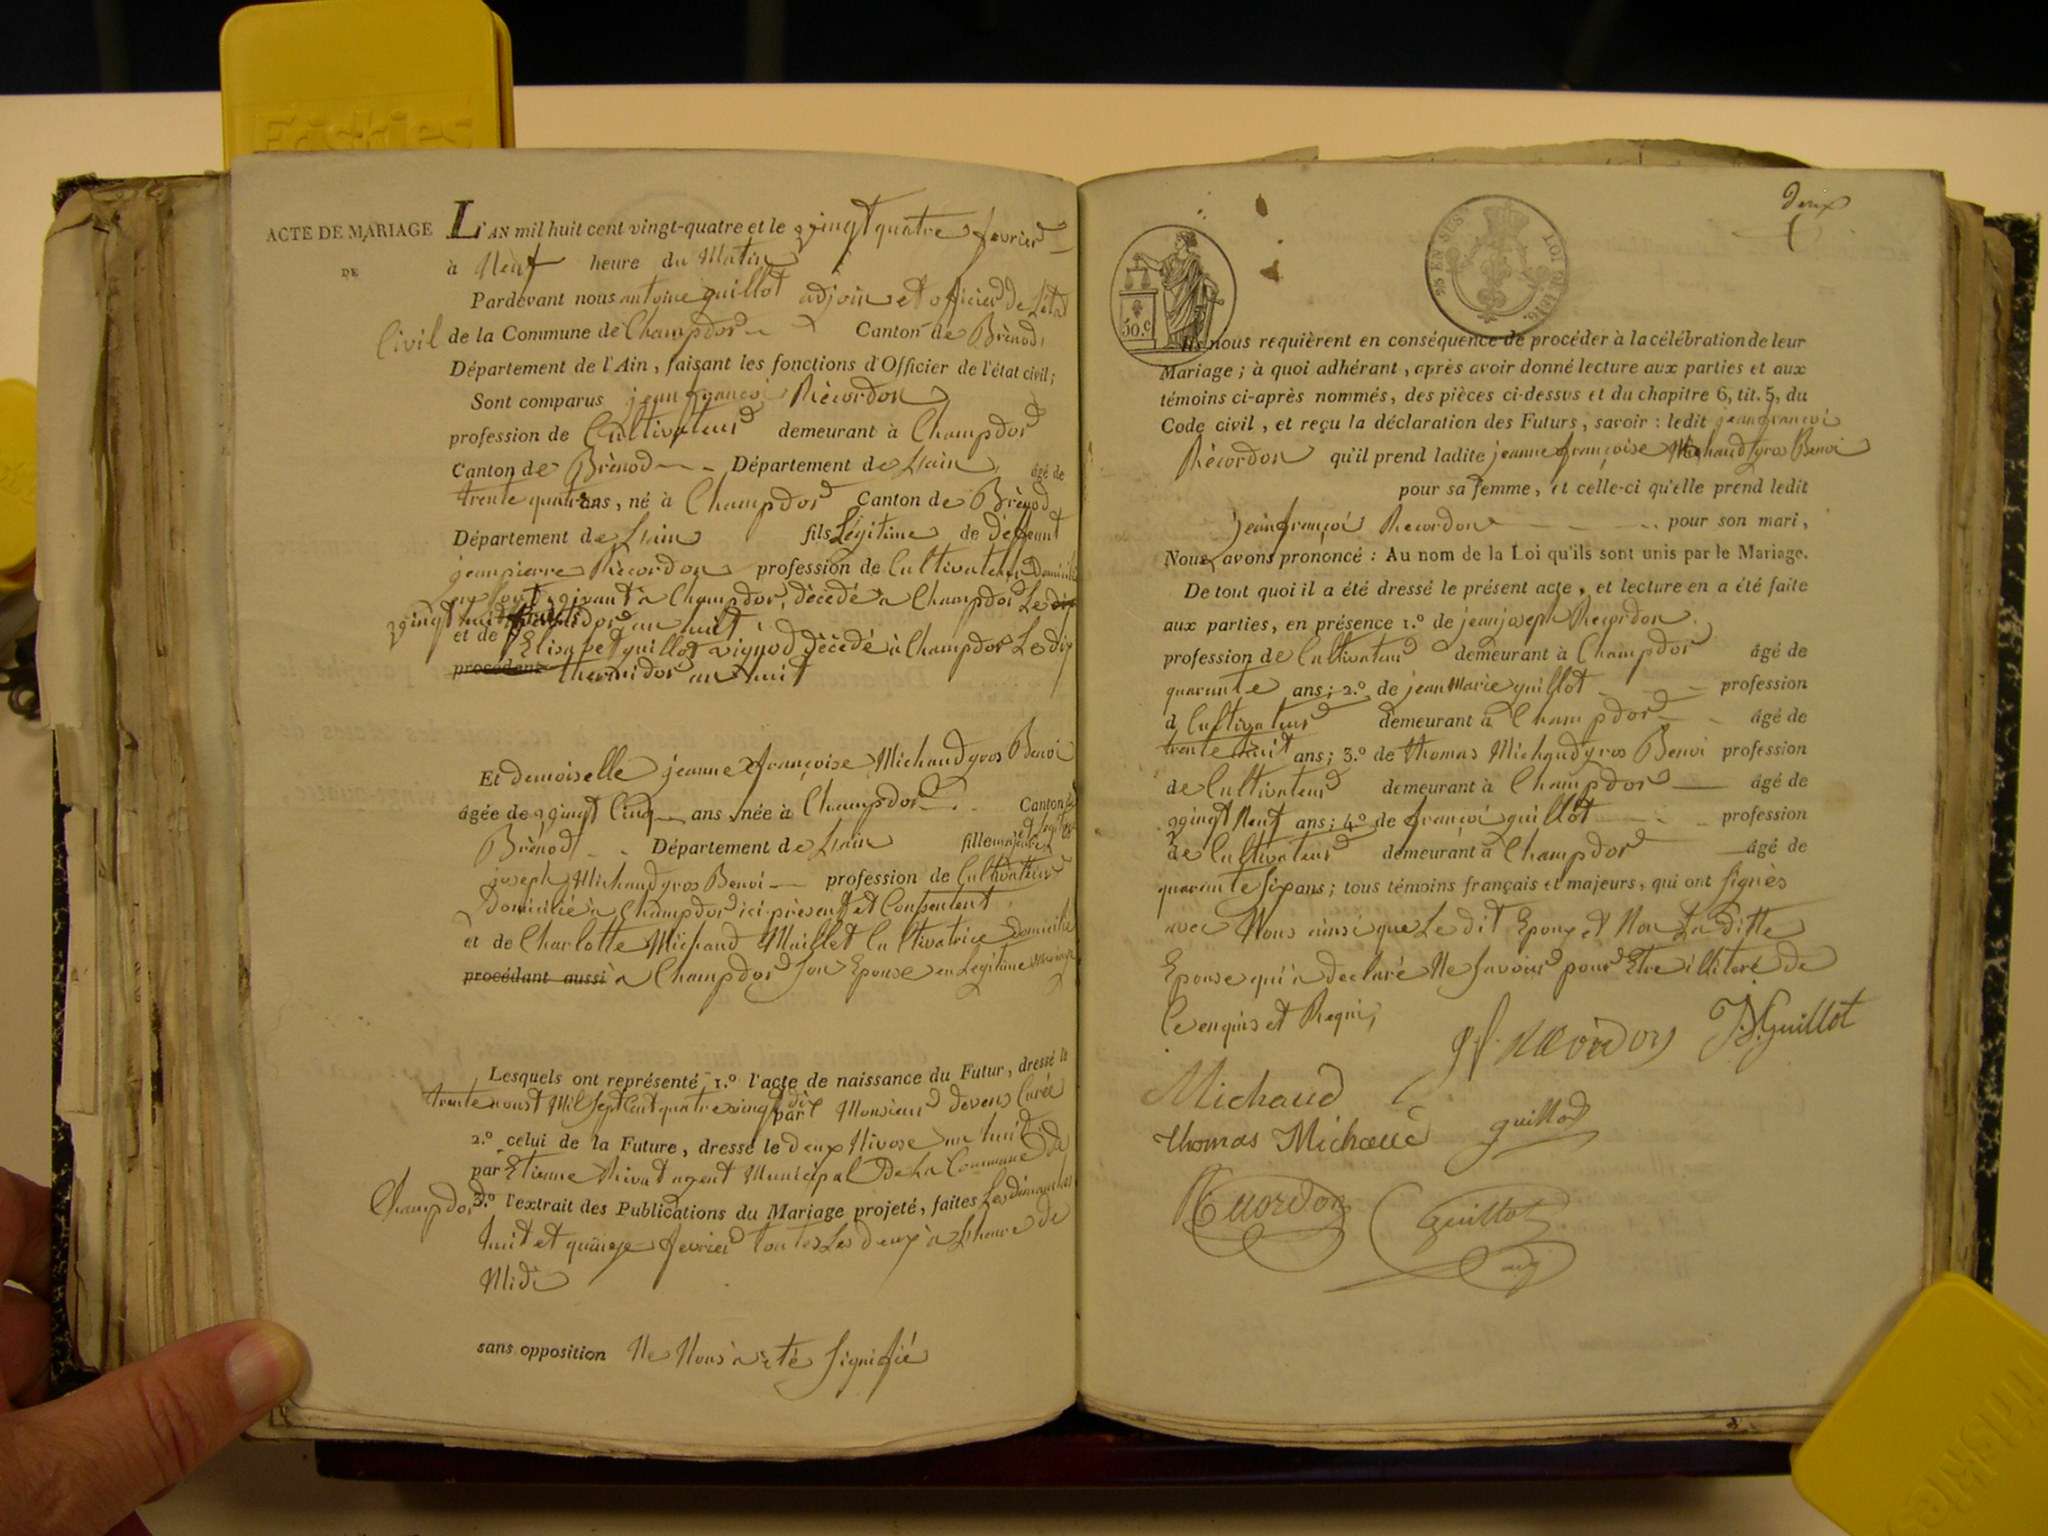 Friskies
ACTE DE MARIAGE
DE
L'AN mil huit cent vingt-quatre et le vingt quatre fevrier
à Neuf heure du Matin
Pardevant nous antoine guillot adjoin et officier de Létat
Civil de la Commune de Champdor Canton de Brènod,
Département de l'Ain, faisant les fonctions d'Officier de l'état civil;
Sont comparus jean françoi Rècordon
profession de Cultivateur demeurant à Champdor
Canton de Brènod Département de Lain âgé de
trente quatre ans, né à Champdor Canton de Brènod
Département de Lain fils Légitime de deffeunt
jean pierre Rècordon profession de Cultivateur Domicilié
vivant à Champdor, dècèdé à Champdor Le
vingt huit an huit
et de Elisabet guillot vignod dècèdé à Champdor Le dix
procédant thermidor an huit
Et demoiselle jeanne françoise Michaud gros Benoi
âgée de vingt Cinq ans, née à Champdor Canton de
Brènod Département de Lain fille majeure et Legitime
joseph Michaud gros Benoi profession de Cultivateur
Domicilié à Champdor ici prèsent et Consentent
et de Charlotte Michaud Maillet Cultivatrice Domicilié
procédant aussi à Champdor Son Epouse en Legitime Mariage
Lesquels ont représenté 1.º l'acte de naissance du Futur, dressé le
trente aoust Mil Sept Cent quatre vingt dix par Monsieur Devens Curée
2.º celui de la Future, dressé le deux Nivose an huit
par Etienne Nivat agent Municipal De La Commune de
Champdor 3.º l'extrait des Publications du Mariage projeté, faites Les dimanches
huit et quinze fevrier toutes Les deux à Lheure de
Midi
sans opposition Ne Nous à èté Signifié
deux
50.c
25 EN SUS
LOI DE 1816.
Ils nous requièrent en conséquence de procéder à la célébration de leur
Mariage; à quoi adhérant, après avoir donné lecture aux parties et aux
témoins ci-après nommés, des pièces ci-dessus et du chapitre 6, tit. 5, du
Code civil, et reçu la déclaration des Futurs, savoir: ledit jean françoi
Rècordon qu'il prend ladite jeanne françoise Michaud gros Benoi
pour sa femme, et celle-ci qu'elle prend ledit
jean françoi Recordon pour son mari,
Nous avons prononcé: Au nom de la Loi qu'ils sont unis par le Mariage.
De tout quoi il a été dressé le présent acte, et lecture en a été faite
aux parties, en présence 1.º de jean joseph Recordon
profession de Cultivateur demeurant à Champdor âgé de
quarante ans; 2.º de jean Marie guillot profession
d Cultivateur demeurant à Champdor âgé de
trente huit ans; 3.º de thomas Michaud gros Benoi profession
de Cultivateur demeurant à Champdor âgé de
vingt Neuf ans; 4.º de françoi guillot profession
de Cultivateur demeurant à Champdor âgé de
quarante Six ans; tous témoins français et majeurs, qui ont Signès
avec Nous ainsi que Le dit Epoux et Non La ditte
Epouse qui à declaré Ne Savoir pour Etre illiteré de
Ce enquis et Requi,
J.M. Guillot
Michaud
thomas Michaud guillot
Recordon Guillot
adj
Friskies